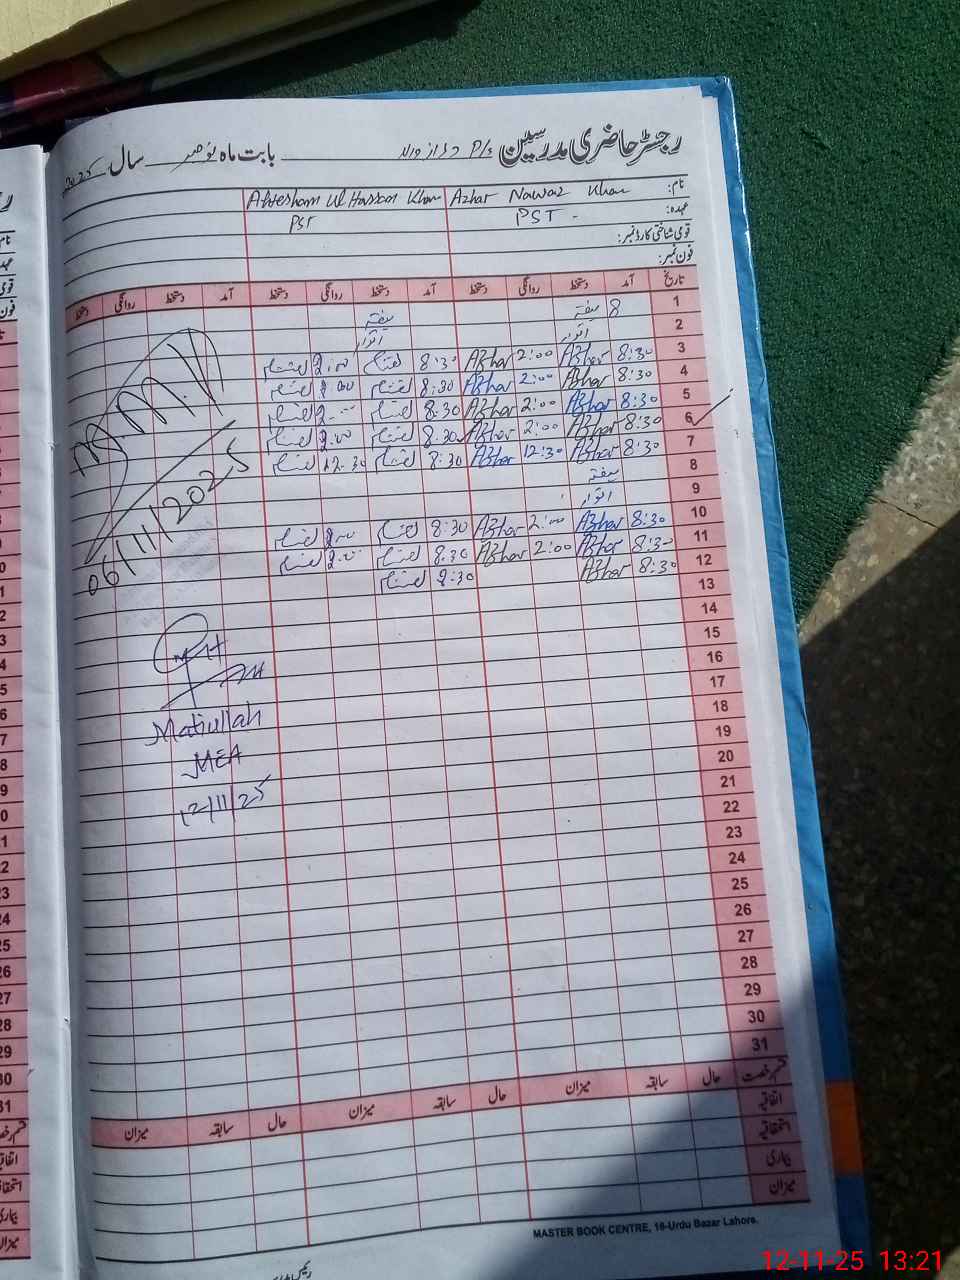 رجسٹر حاضری مدرسین P/s بابت ماہ نومبر سال 2025
نام: Azhar Nawaz Khan Ahtesham Ul Hassan Khan
عہدہ: PST - PST
قومی شناختی کارڈ نمبر:
فون نمبر:
تاریخ آمد دستخط روانگی دستخط آمد دستخط روانگی دستخط آمد دستخط روانگی دستخط
1 8 ہفتہ ہفتہ
2 اتوار اتوار
3 8:30 Azhar 2:00 Azhar 8:30 احتشام 2:00 احتشام
4 8:30 Azhar 2:00 Azhar 8:30 احتشام 2:00 احتشام
5 8:30 Azhar 2:00 Azhar 8:30 احتشام 2:00 احتشام
6 8:30 Azhar 2:00 Azhar 8:30 احتشام 2:00 احتشام
7 8:30 Azhar 12:30 Azhar 8:30 احتشام 12:30 احتشام
8 ہفتہ
9 اتوار
10 8:30 Azhar 2:00 Azhar 8:30 احتشام 2:00 احتشام
11 8:30 Azhar 2:00 Azhar 8:30 احتشام 2:00 احتشام
12 8:30 Azhar 8:30 احتشام
13
14
15
16
17
18
19
20
21
22
23
24
25
26
27
28
29
30
31
06/11/2025
Matiullah
MEA
12/11/25
قسم رخصت حال سابقہ میزان حال سابقہ میزان حال سابقہ میزان
اتفاقیہ
استحقاقیہ
بیماری
میزان
MASTER BOOK CENTRE, 16-Urdu Bazar Lahore.
12-11-25 13:21